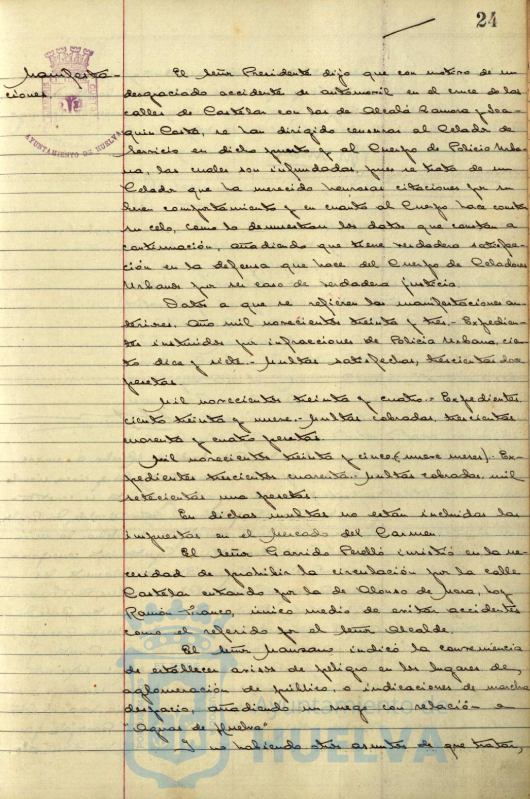 24
Manifesta-
ciones
AYUNTAMIENTO DE HUELVA
El Señor Presidente dijo que con motivo de un
desgraciado accidente de automovil en el cruce de las
calles de Castelar con las de Alcalá Zamora y Joa-
quin Costa, se han dirigido censuras al Celador de
servicio en dicho puesto y al Cuerpo de Policia Urba-
na, las cuales son infundadas, pues se trata de un
Celador que ha merecido honrosas citaciones por su
buen comportamiento y en cuanto al Cuerpo hace constar
su celo, como lo demuestran los datos que constan a
continuación, añadiendo que tiene verdadera satisfac-
ción en la defensa que hace del Cuerpo de Celadores
Urbanos por ser caso de verdadera justicia.
Datos a que se refieren las manifestaciones an-
teriores. Año mil novecientos treinta y tres.- Expedien-
tes instruidos por infracciones de Policia Urbana, cien-
to diez y siete.- Multas satisfechas, trescientas doce
pesetas.
Mil novecientos treinta y cuatro.- Expedientes,
ciento treinta y nueve.- Multas cobradas, trescientas
cuarenta y cuatro pesetas.
Mil novecientos treinta y cinco (nueve meses).- Ex-
pedientes trescientos cuarenta.- Multas cobradas, mil
setecientas una pesetas.
En dichas multas no están incluidas las
impuestas en el Mercado del Carmen.
El Señor Garrido Perelló insistió en la ne-
cesidad de prohibir la circulación por la calle
Castelar entrando por la de Alonso de Mora, hoy
Ramón Franco, único medio de evitar accidentes
como el referido por el Señor Alcalde.
El Señor Manzano indicó la conveniencia
de establecer avisos de peligro en los lugares de
aglomeración de público, o indicaciones de marcha
despacio, añadiendo un ruego con relación a
"Aguas de Huelva"
Y no habiendo otros asuntos de que tratar,
HUELVA